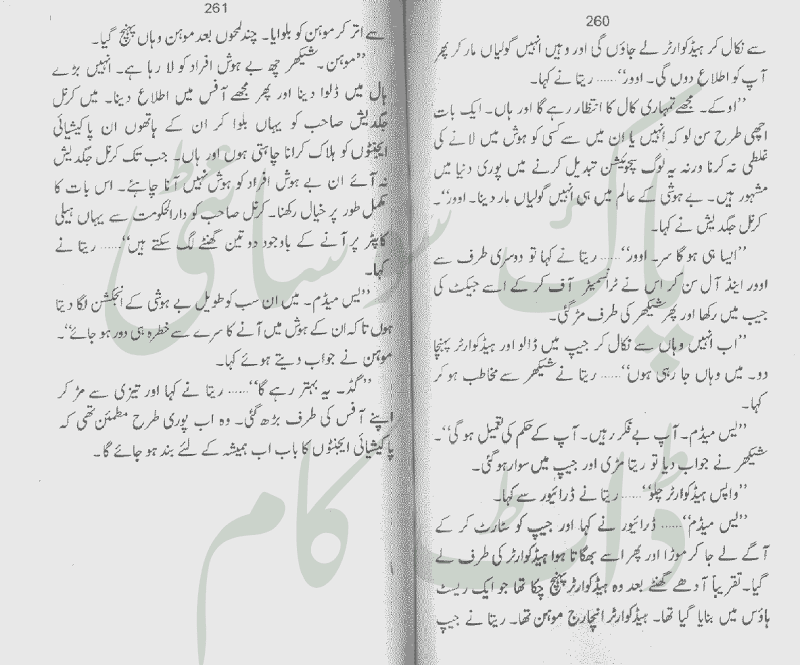 260
سے نکال کر ہیڈکوارٹر لے جاؤں گی اور وہیں انہیں گولیاں مار کر پھر
آپ کو اطلاع دوں گی۔ اوور‘‘...... ریتا نے کہا۔
’’اوکے۔ مجھے تمہاری کال کا انتظار رہے گا اور ہاں۔ ایک بات
اچھی طرح سن لو کہ انہیں یا ان میں سے کسی کو ہوش میں لانے کی
غلطی نہ کرنا ورنہ یہ لوگ سچوئیشن تبدیل کرنے میں پوری دنیا میں
مشہور ہیں۔ بے ہوشی کے عالم میں ہی انہیں گولیاں مار دینا۔ اوور‘‘۔
کرنل جگدیش نے کہا۔
’’ایسا ہی ہو گا سر۔ اوور‘‘...... ریتا نے کہا تو دوسری طرف سے
اوور اینڈ آل سن کر اس نے ٹرانسمیٹر آف کر کے اسے جیکٹ کی
جیب میں رکھا اور پھر شیکھر کی طرف مڑ گئی۔
’’اب انہیں وہاں سے نکال کر جیپ میں ڈالو اور ہیڈکوارٹر پہنچا
دو۔ میں وہاں جا رہی ہوں‘‘...... ریتا نے شیکھر سے مخاطب ہو کر
کہا۔
’’یس میڈم۔ آپ بے فکر رہیں۔ آپ کے حکم کی تعمیل ہو گی‘‘۔
شیکھر نے جواب دیا تو ریتا مڑی اور جیپ میں سوار ہو گئی۔
’’واپس ہیڈکوارٹر چلو‘‘...... ریتا نے ڈرائیور سے کہا۔
’’یس میڈم‘‘...... ڈرائیور نے کہا اور جیپ کو سٹارٹ کر کے
آگے لے جا کر موڑا اور پھر اسے بھگاتا ہوا ہیڈکوارٹر کی طرف لے
گیا۔ تقریباً آدھے گھنٹے بعد وہ ہیڈکوارٹر پہنچ چکا تھا جو ایک ریسٹ
ہاؤس میں بنایا گیا تھا۔ ہیڈکوارٹر انچارج موہن تھا۔ ریتا نے جیپ
261
سے اتر کر موہن کو بلوایا۔ چند لمحوں بعد موہن وہاں پہنچ گیا۔
’’موہن۔ شیکھر چھ بے ہوش افراد کو لا رہا ہے۔ انہیں بڑے
ہال میں ڈلوا دینا اور پھر مجھے آفس میں اطلاع دینا۔ میں کرنل
جگدیش صاحب کو یہاں بلوا کر ان کے ہاتھوں ان پاکیشیائی
ایجنٹوں کو ہلاک کرانا چاہتی ہوں اور ہاں۔ جب تک کرنل جگدیش
نہ آئے ان بے ہوش افراد کو ہوش نہیں آنا چاہئے۔ اس بات کا
مکمل طور پر خیال رکھنا۔ کرنل صاحب کو دارالحکومت سے یہاں ہیلی
کاپٹر پر آنے کے باوجود دو تین گھنٹے لگ سکتے ہیں‘‘...... ریتا نے
کہا۔
’’یس میڈم۔ میں ان سب کو طویل بے ہوشی کے انجکشن لگا دیتا
ہوں تا کہ ان کے ہوش میں آنے کا سرے سے خطرہ ہی دور ہو جائے‘‘۔
موہن نے جواب دیتے ہوئے کہا۔
’’گڈ۔ یہ بہتر رہے گا‘‘...... ریتا نے کہا اور تیزی سے مڑ کر
اپنے آفس کی طرف بڑھ گئی۔ وہ اب پوری طرح مطمئن تھی کہ
پاکیشیائی ایجنٹوں کا باب اب ہمیشہ کے لئے بند ہو جائے گا۔
پاک سوسائٹی
ڈاٹ کام